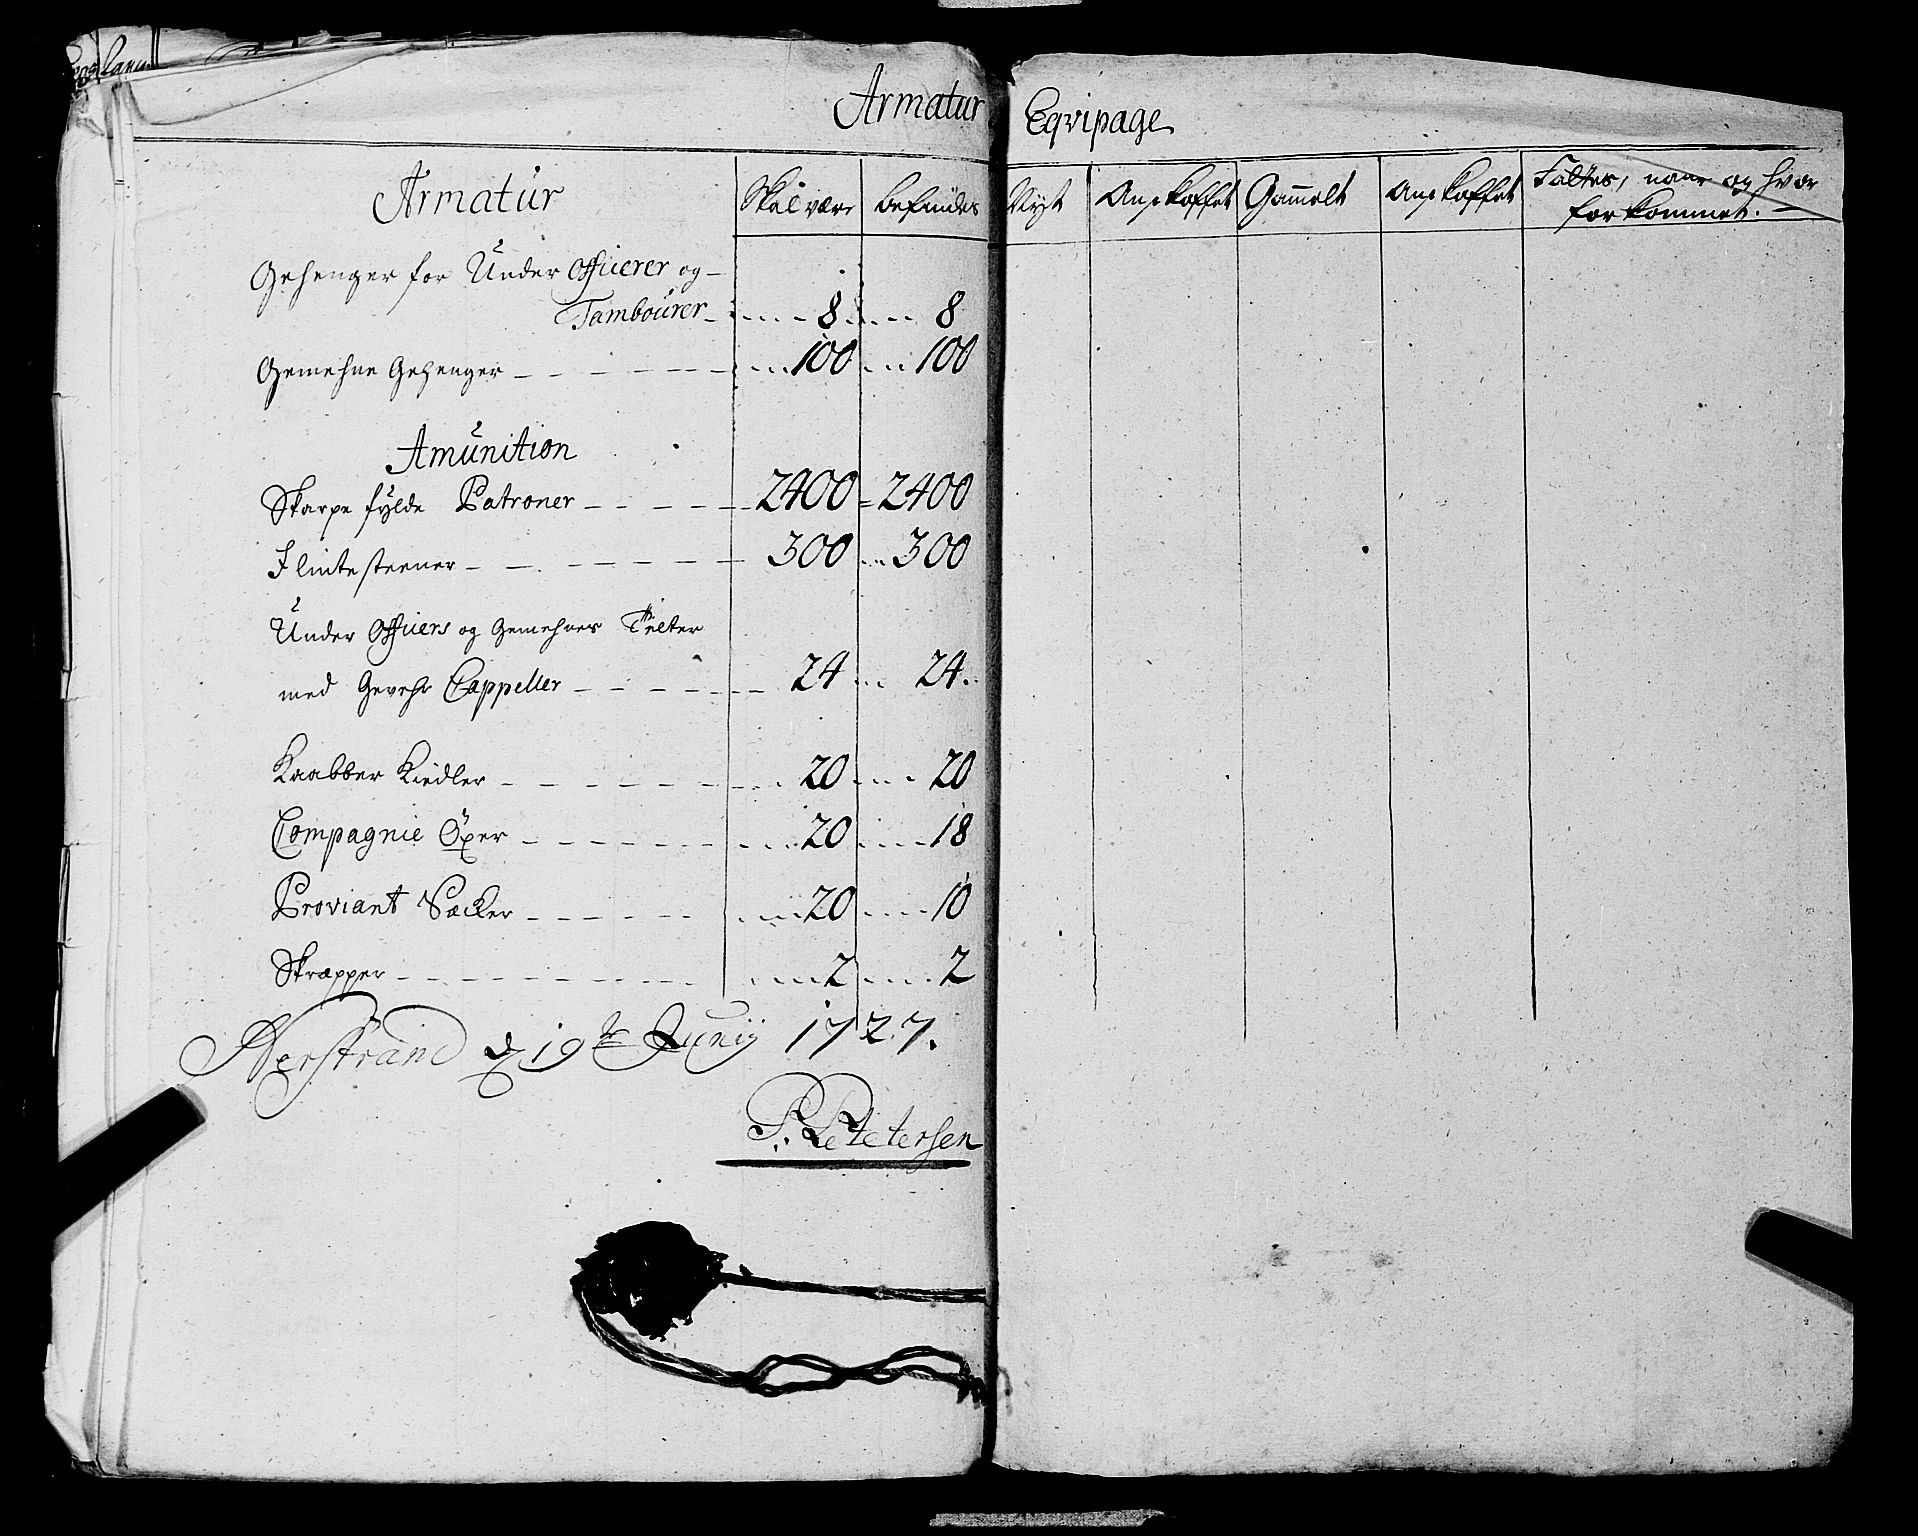 Armatur Eqvipage
Armatür Skal være befindes Nÿt Anskoffet Gam̄elt Anskoffet Faltes, naar og hvor
forkommet.
Gehenger for Under Officierer og
Tambourer 8 8
Gemehne Gehenger 100 100
Amünition
Skarpe fylde Patroner 2400 2400
Flintesteener 300 300
Under Officiers og Gemehnes Telter
med Gevehr Cappeller 24 24
Kaabber Kiedler 20 20
Compagnie Öxer 20 18
Proviant Sæcker 20 10
Skræpper 2 2
Nerstrand d 19te Junij 1727.
Petersen